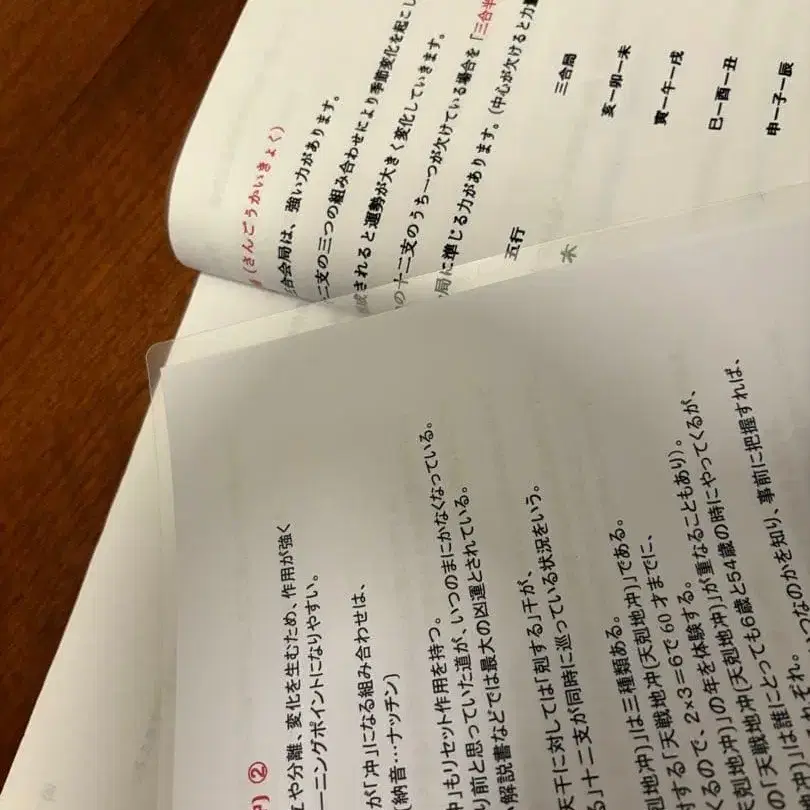 (さんごうかいきょく)
三合会局は、強い力があります。
十二支の三つの組み合わせにより季節変化を起こし
されると運勢が大きく変化していきます。
の十二支のうち一つが欠けている場合を「三合半
局に準じる力があります。(中心が欠けると力量
五行 三合局
木 亥ー卯ー未
寅ー午ー戌
巳ー酉ー丑
申ー子ー辰
②
や分離、変化を生むため、作用が強く
ーニングポイントになりやすい。
が「冲」になる組み合わせは、
(納音…ナッチン)
冲」もリセット作用を持つ。
り前と思っていた道が、いつのまにかなくなっている。
解説書などでは最大の凶運とされている。
天干に対しては「剋する」干が、
る」十二支が同時に巡っている状況をいう。
剋地冲)」は三種類ある。
する「天戦地冲(天剋地冲)」が重なることもあり)。
るので、2×3=6で60才までに、
剋地冲)」の年を体験する。
の「天戦地冲(天剋地冲)」は誰にとっても6歳と54歳の時にやってくるが、
いつなのかを知り、事前に把握すれば、